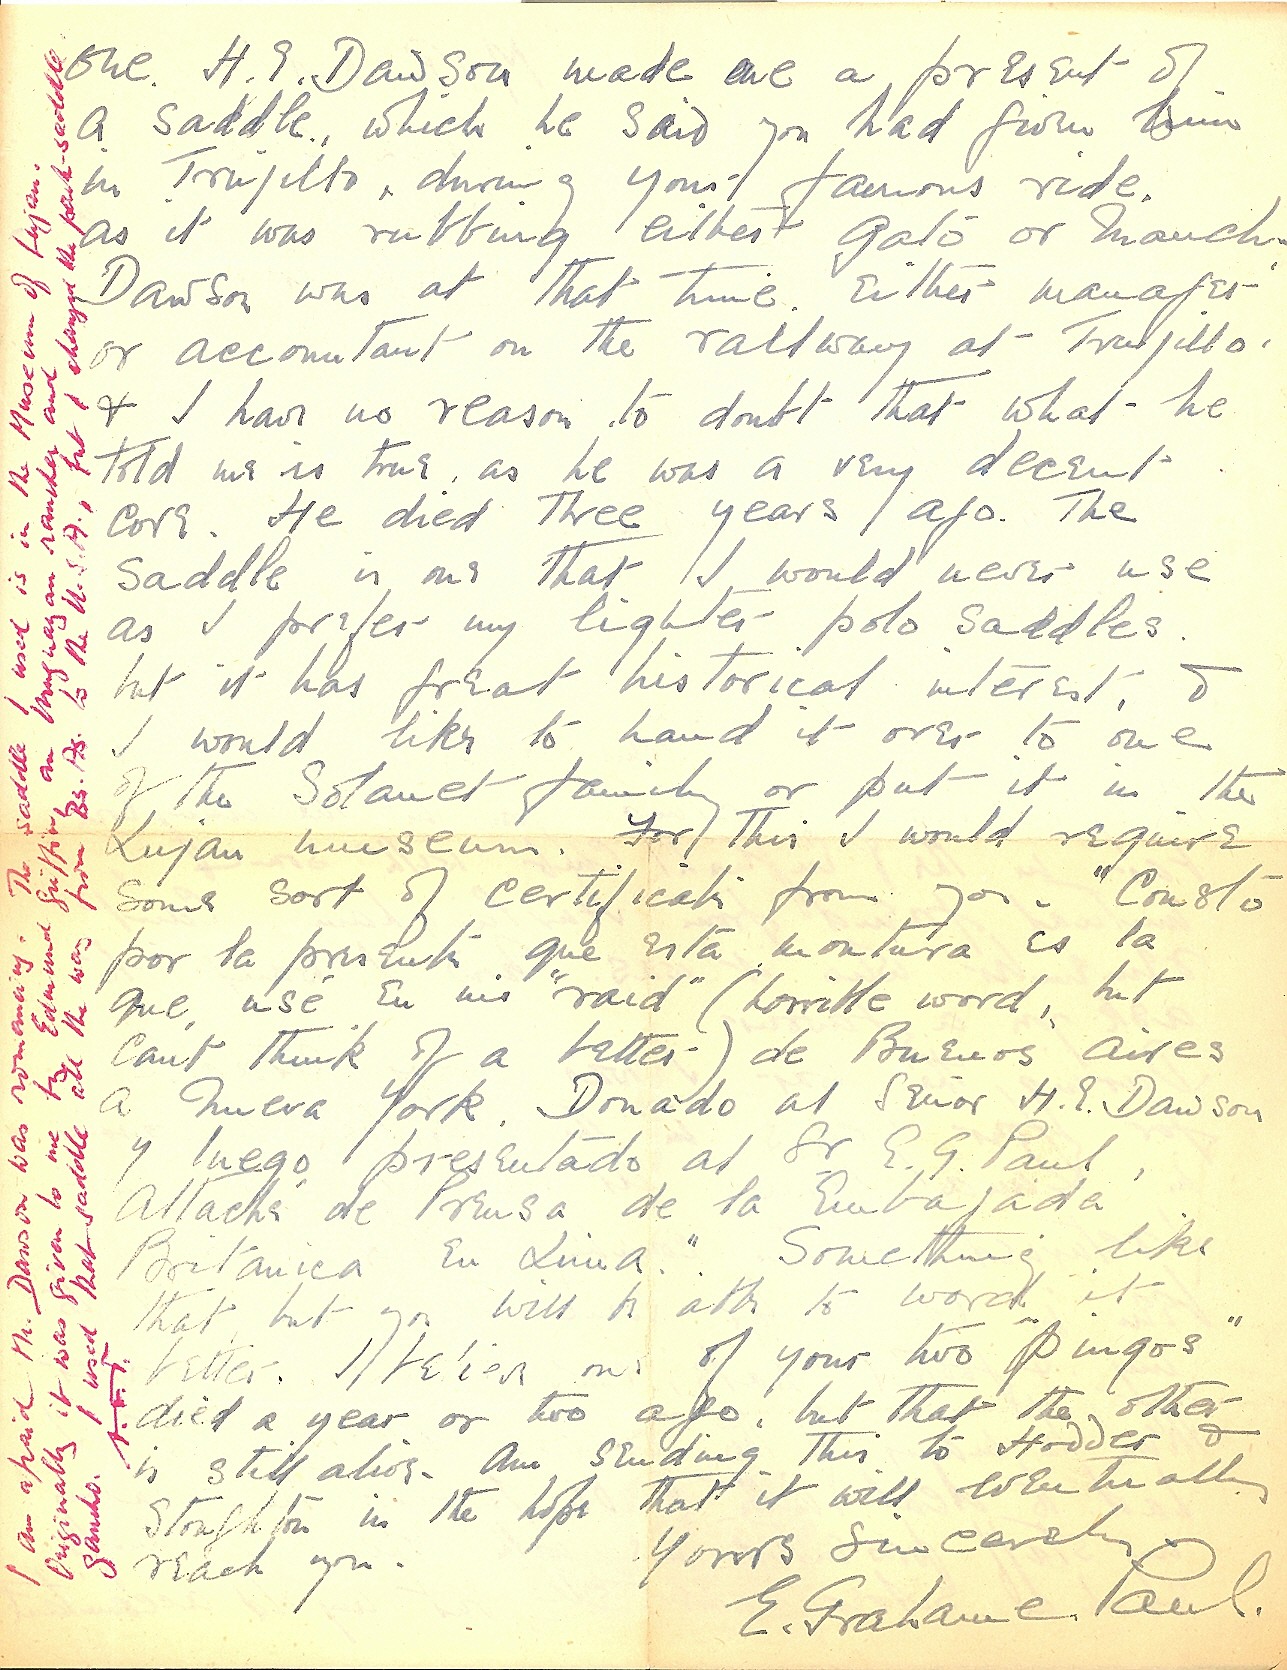 one. H.E. Dawson made me a present of
a saddle, which he said you had given him
in Trujillo, during your famous ride.
as it was rubbing either Gato or Manch.
Dawson was at that time, either manager
or accountant on the railway at Trujillo.
& I have no reason to doubt that what he
told me is true, as he was a very decent
cove. He died three years ago. The
saddle is one that I would never use
as I prefer my lighter polo saddles.
but it has great historical interest, &
I would like to hand it over to one
of the Solanet family or put it in the
Lujan museum. For this I would require
some sort of certificate from you. "Consto
por la presente que esta montura es la
que usé en mis "raid" (horrible word, but
cant think of a better) de Buenos Aires
a Nueva York. Donado al Señor H.E. Dawson
y luego presentado al Sr E.G. Paul,
Attaché de Prensa de la Embajada
Britanica en Lima." Something like
that, but you will be able to word it
better. I believe one of your two "pingos"
died a year or two ago, but that the other
is still alive. Am sending this to Hodder &
Stoughton in the hope that it will eventually
reach you. Yours sincerely
E. Grahame Paul.
I am afraid Mr. Dawson was romancing. The saddle I used is in the Museum of Lujan.
Originally it was given to me by Edmund Griffin, an Uruguayan rancher and
Gaucho. I used that saddle all the way from Bs. As. to the U.S.A., but I changed the pack-saddle
A.F.T.